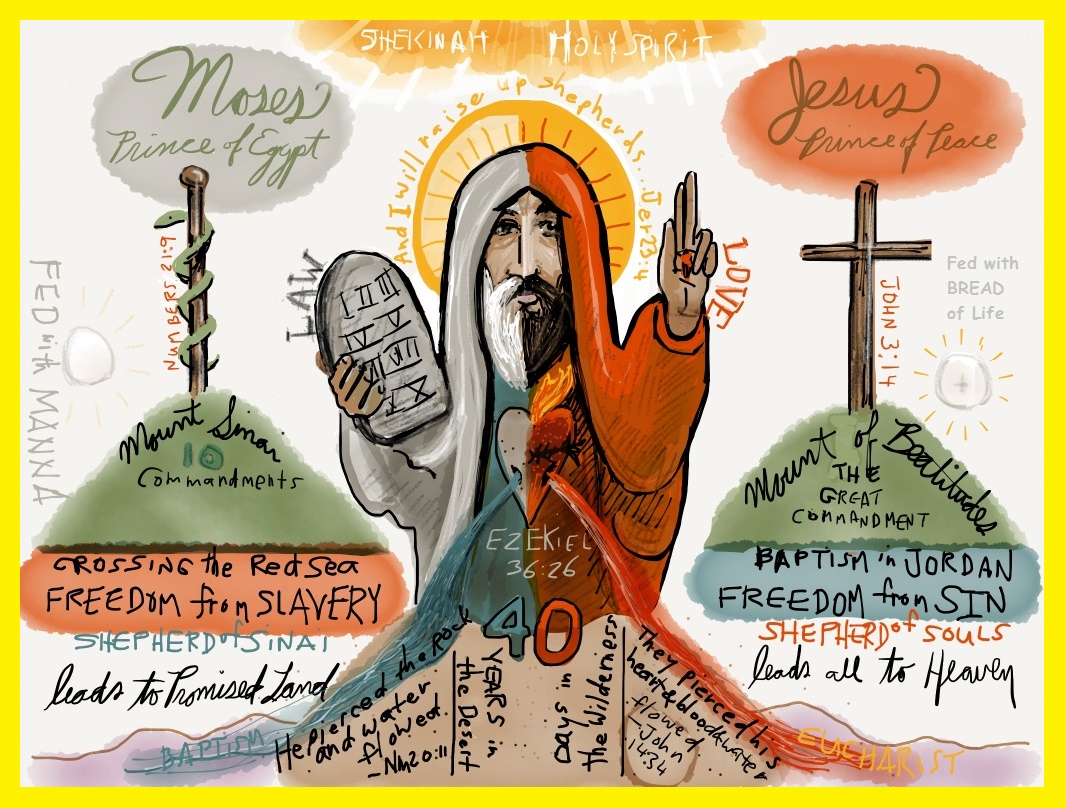 SHEKINAH HOLY SPIRIT
Moses
Prince of Egypt
And I will raise up shepherds... Jer 23:4
Jesus
Prince of Peace
NUMBERS 21:9
FED with MANNA
LAW
I II III
LOVE
JOHN 3:14
Fed with
BREAD
of Life
Mount Sinai
10
Commandments
Mount of Beatitudes
THE
GREAT
COMMANDMENT
EZEKIEL
36:26
CROSSING the Red Sea
FREEDOM from SLAVERY
SHEPHERD of SINAI
leads to Promised Land
BAPTISM in JORDAN
FREEDOM from SIN
SHEPHERD of SOULS
leads all to Heaven
40
He pierced the Rock
and water
flowed.
-Nm 20:11
YEARS in
the Desert
Days in
the Wilderness
They pierced his
heart & blood & water
flowed
-John
19:34
BAPTISM
EUCHARIST